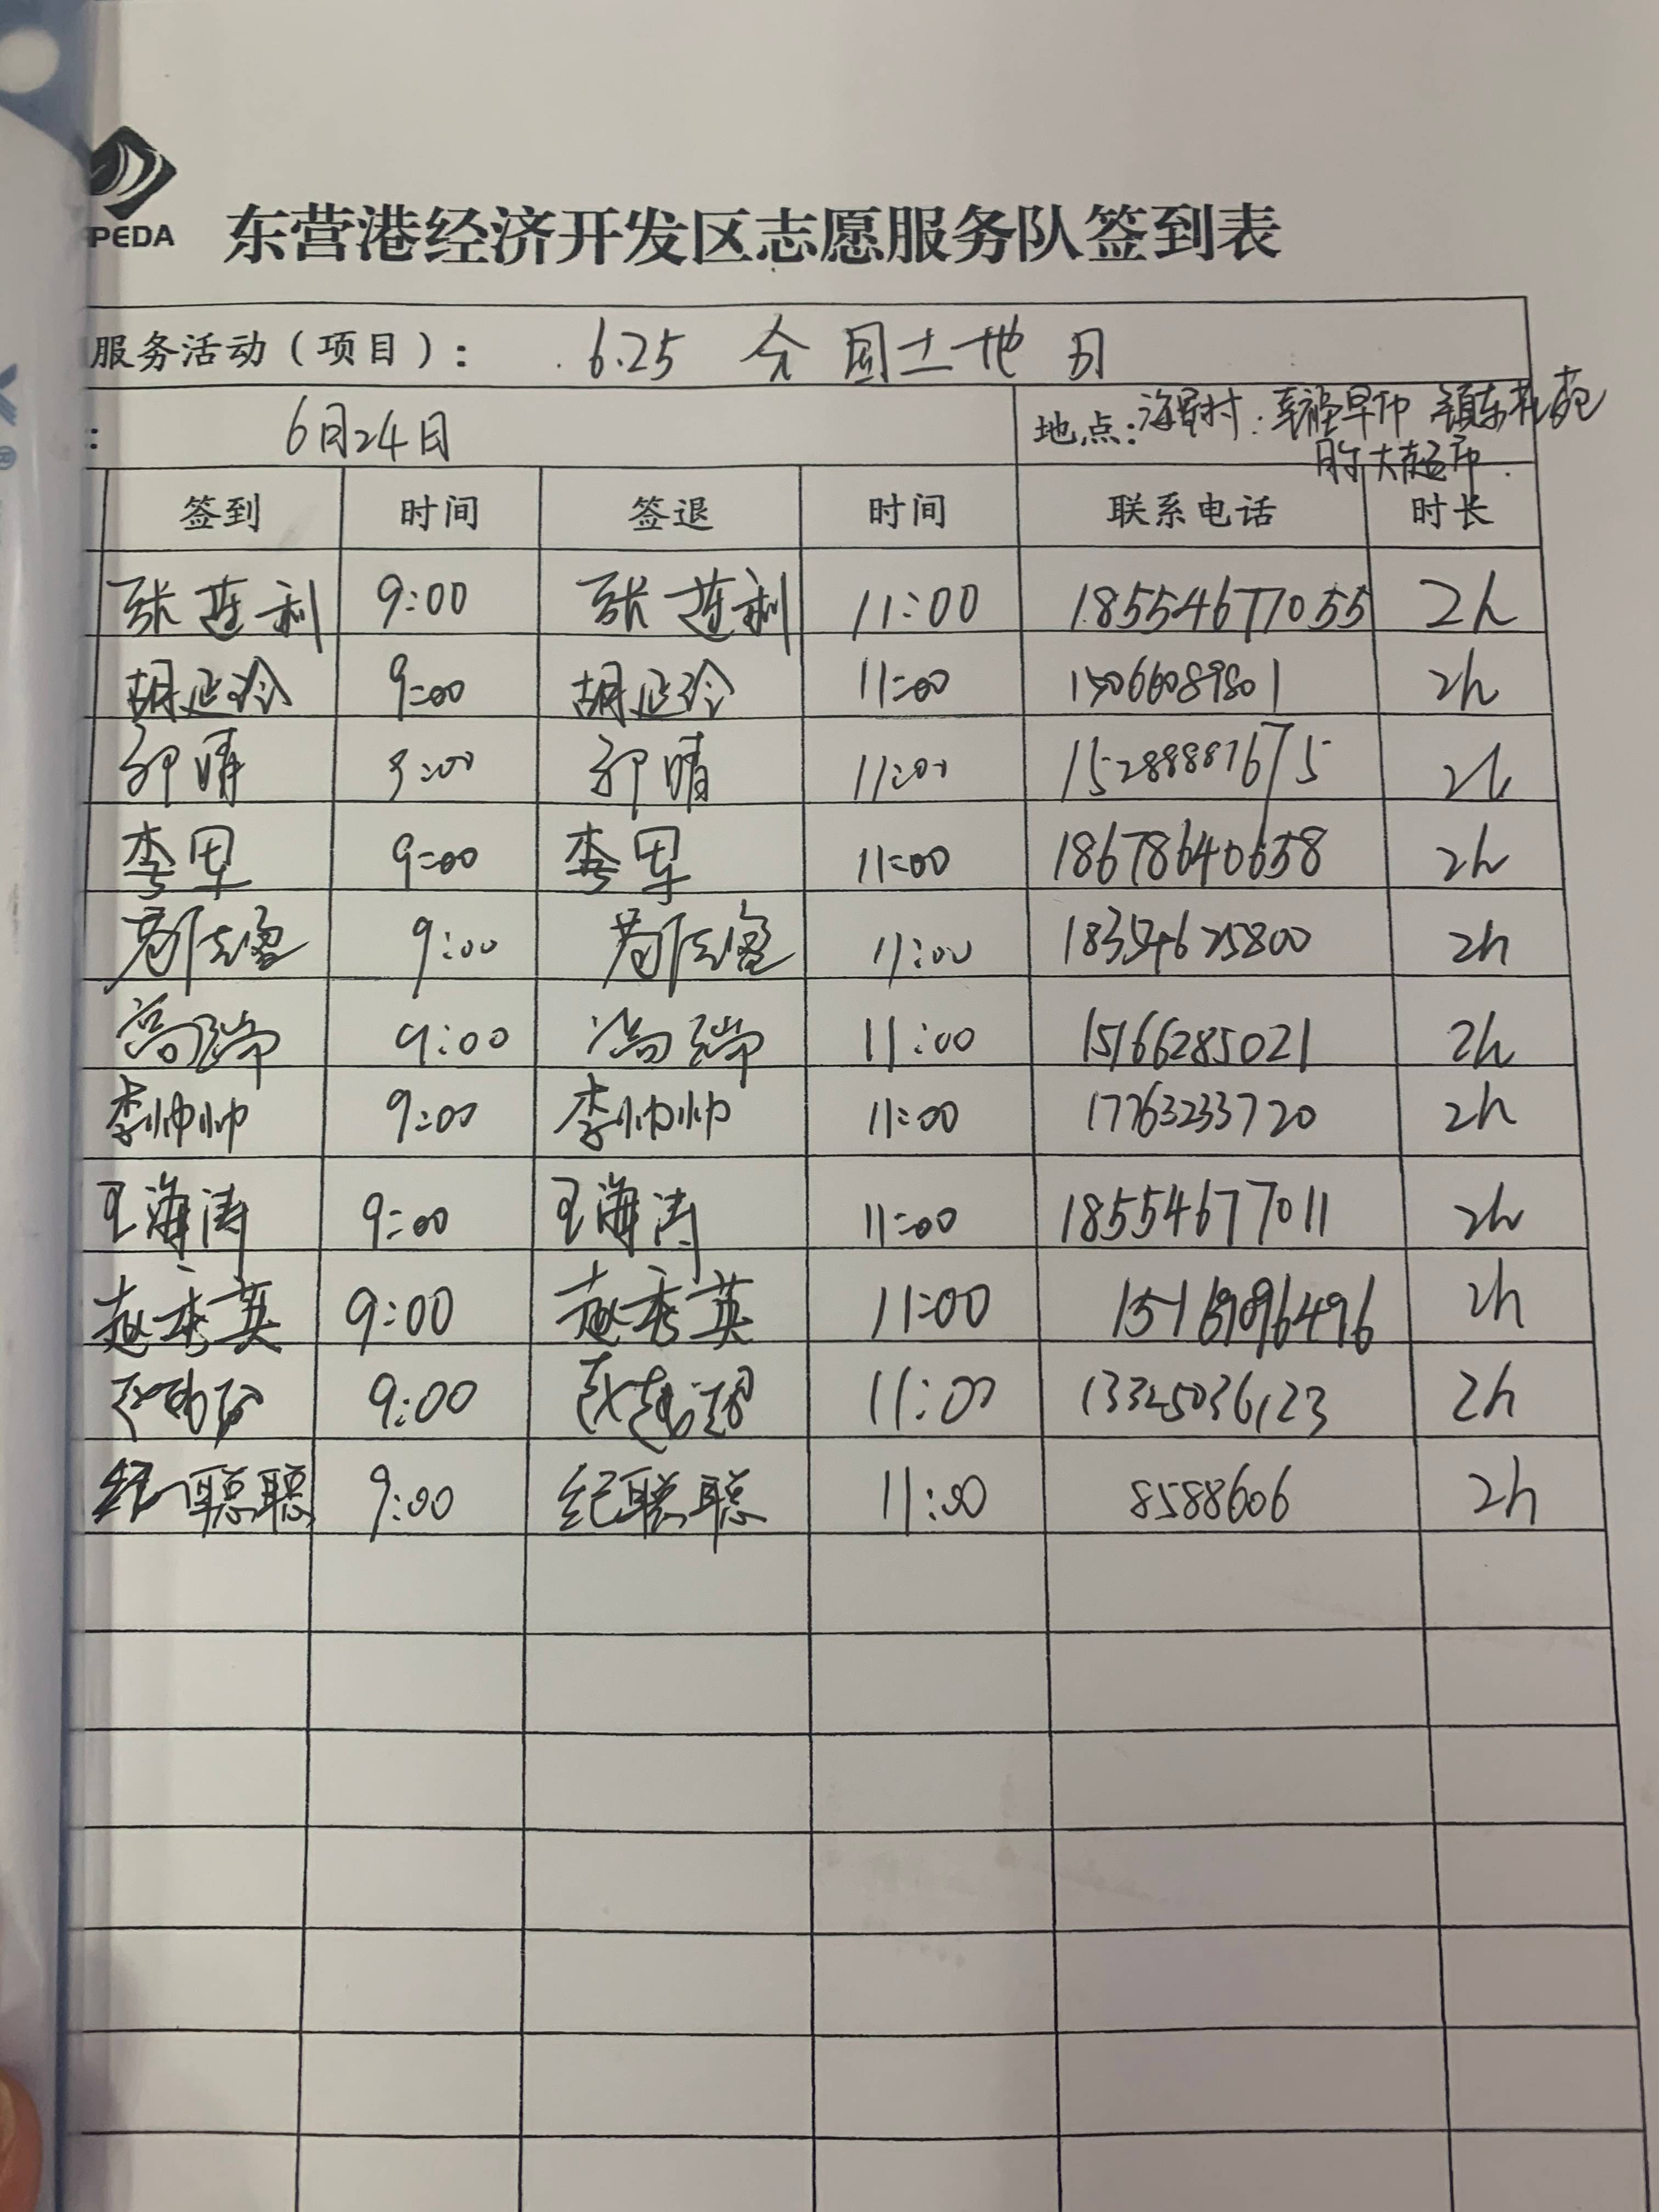 PEDA
东营港经济开发区志愿服务队签到表
服务活动（项目）： 6.25 全国土地日
： 6月24日 地点：海星村
大超市
签到 时间 签退 时间 联系电话 时长
张莲利 9:00 张莲利 11:00 18554677055 2h
胡延玲 9:00 胡延玲 11:00 15066089801 2h
郭晴 9:00 郭晴 11:00 2h
李军 9:00 李军 11:00 18678640658 2h
9:00 11:00 18354625800 2h
高瑞 9:00 高瑞 11:00 15166285021 2h
李帅帅 9:00 李帅帅 11:00 17763233720 2h
王海涛 9:00 王海涛 11:00 18554677011 2h
赵秀英 9:00 赵秀英 11:00 2h
9:00 11:00 13325036123 2h
纪聪聪 9:00 纪聪聪 11:00 8588606 2h